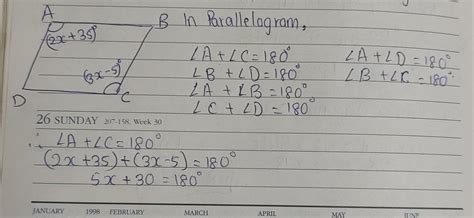 A
B In Parallelogram,
(2x + 35)°
∠A + ∠C = 180° ∠A + ∠D = 180°
(3x - 5)° ∠B + ∠D = 180° ∠B + ∠C = 180°
∠A + ∠B = 180°
D C ∠C + ∠D = 180°
26 SUNDAY 207-158. Week 30
∴ ∠A + ∠C = 180°
(2x + 35) + (3x - 5) = 180°
5x + 30 = 180°
JANUARY 1998 FEBRUARY MARCH APRIL MAY JUNE